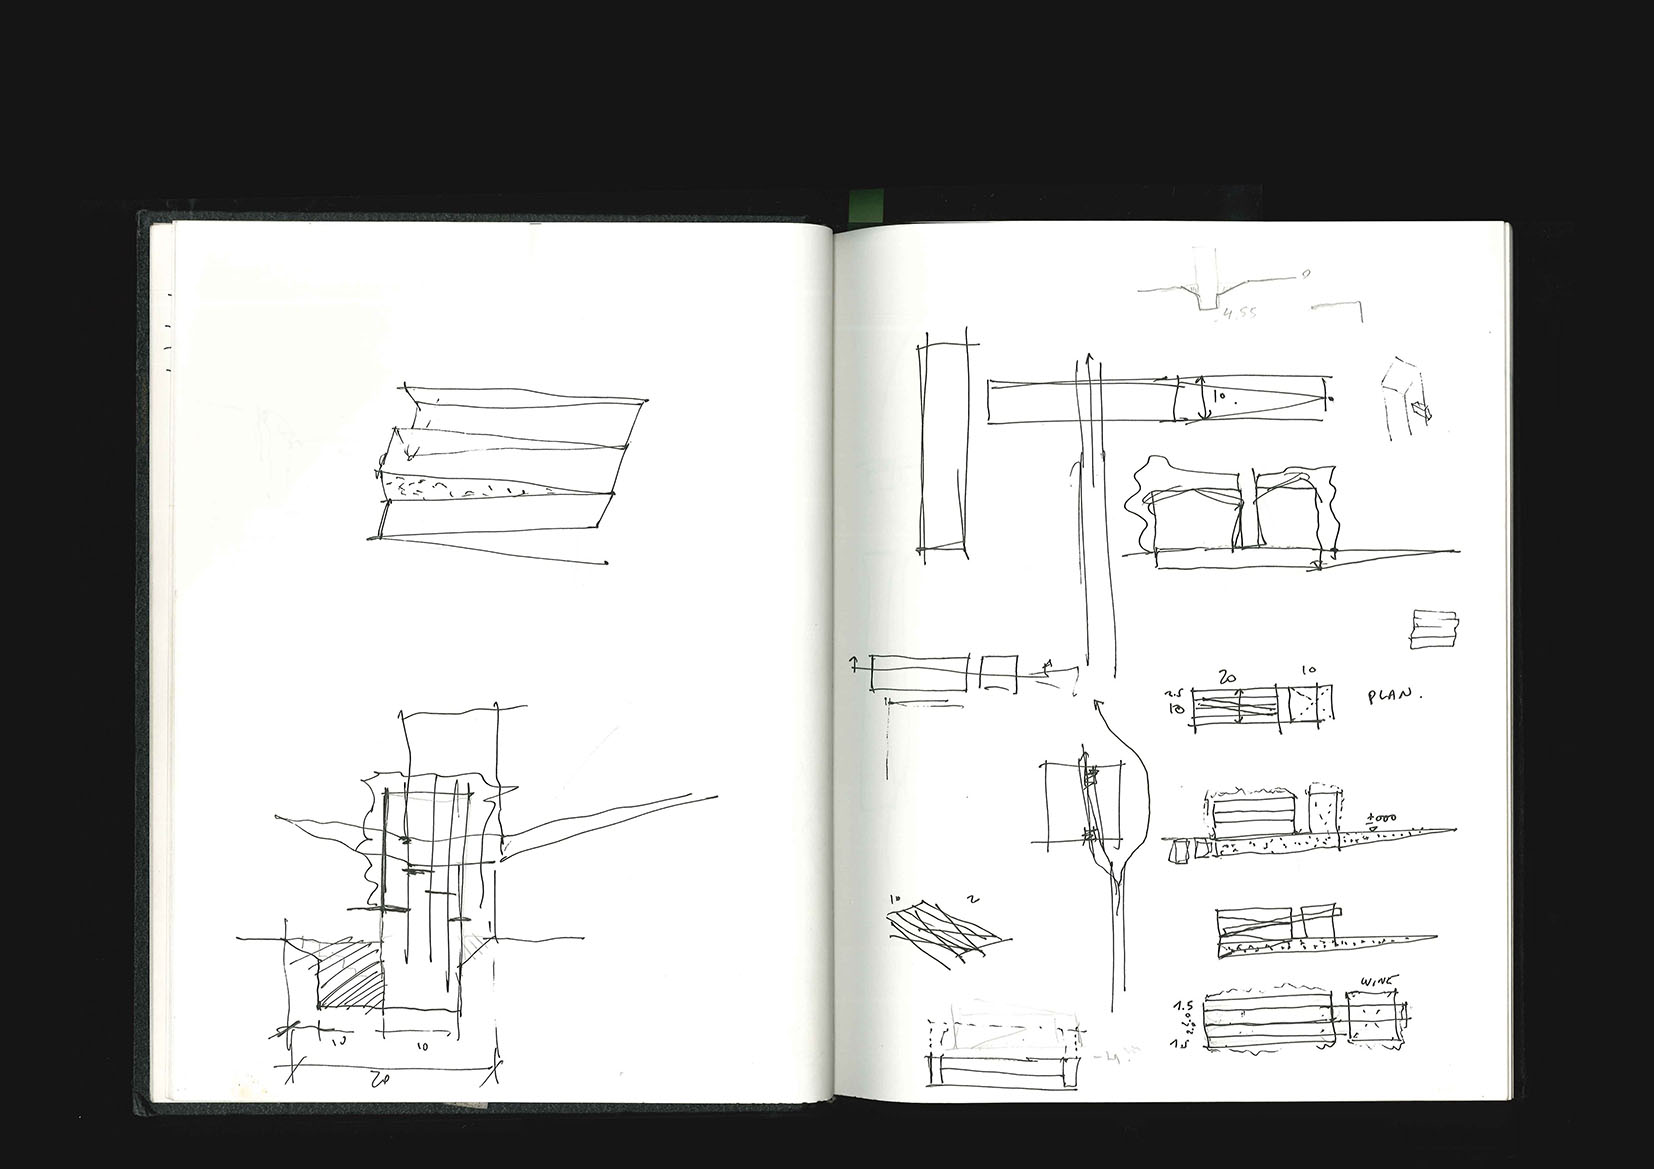 10
10
20
-4.55
10.
20
10
2.5
10
PLAN.
±000
10
2
WINE
1.5
1.5